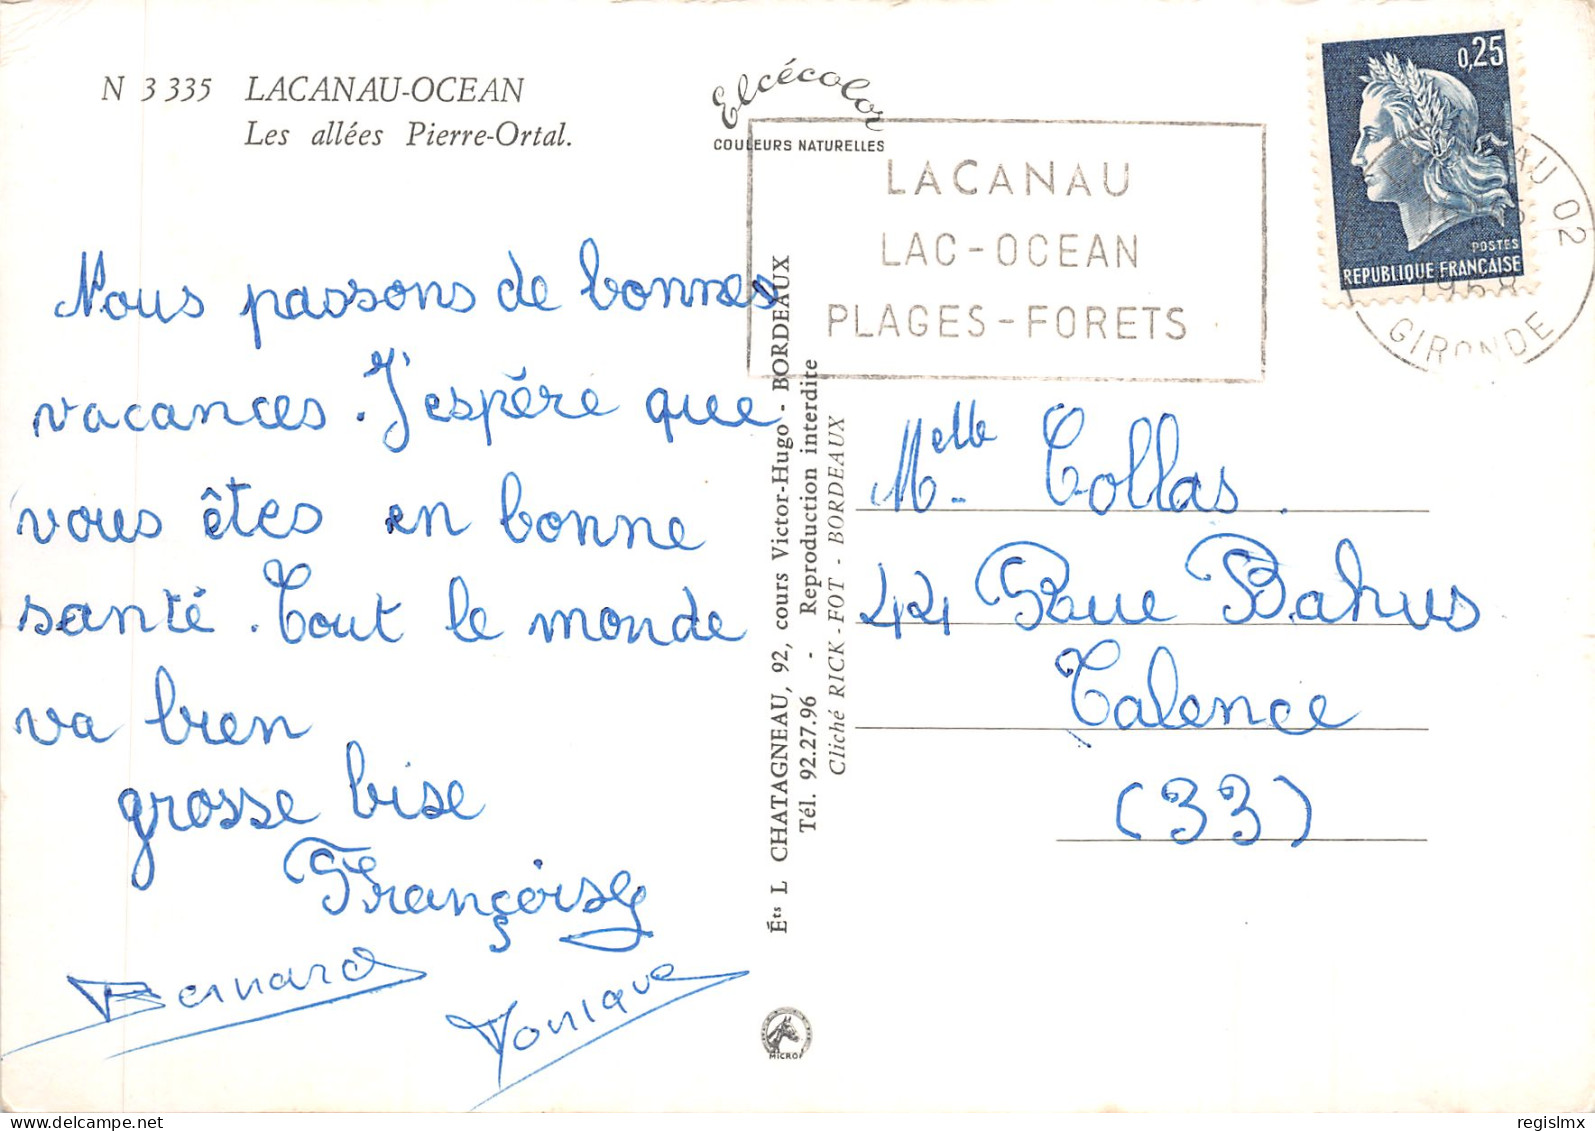 N 3 335 LACANAU-OCEAN
Les allées Pierre-Ortal.
Elcécolor
COULEURS NATURELLES
LACANAU
LAC-OCEAN
PLAGES-FORETS
0,25
POSTES
REPUBLIQUE FRANÇAISE
AU 02
1968
GIRONDE
Nous passons de bonnes
vacances. J'espére que
vous êtes en bonne
santé. Tout le monde
va bien
grosse bise
Françoise
Bernard
Monique
Éts L CHATAGNEAU, 92, cours Victor-Hugo - BORDEAUX
Tél. 92.27.96 - Reproduction interdite
Cliché RICK-FOT - BORDEAUX
Melle Collas.
44 Rue Bahus
Talence
(33)
MICRO
regislmx
delcampe.net